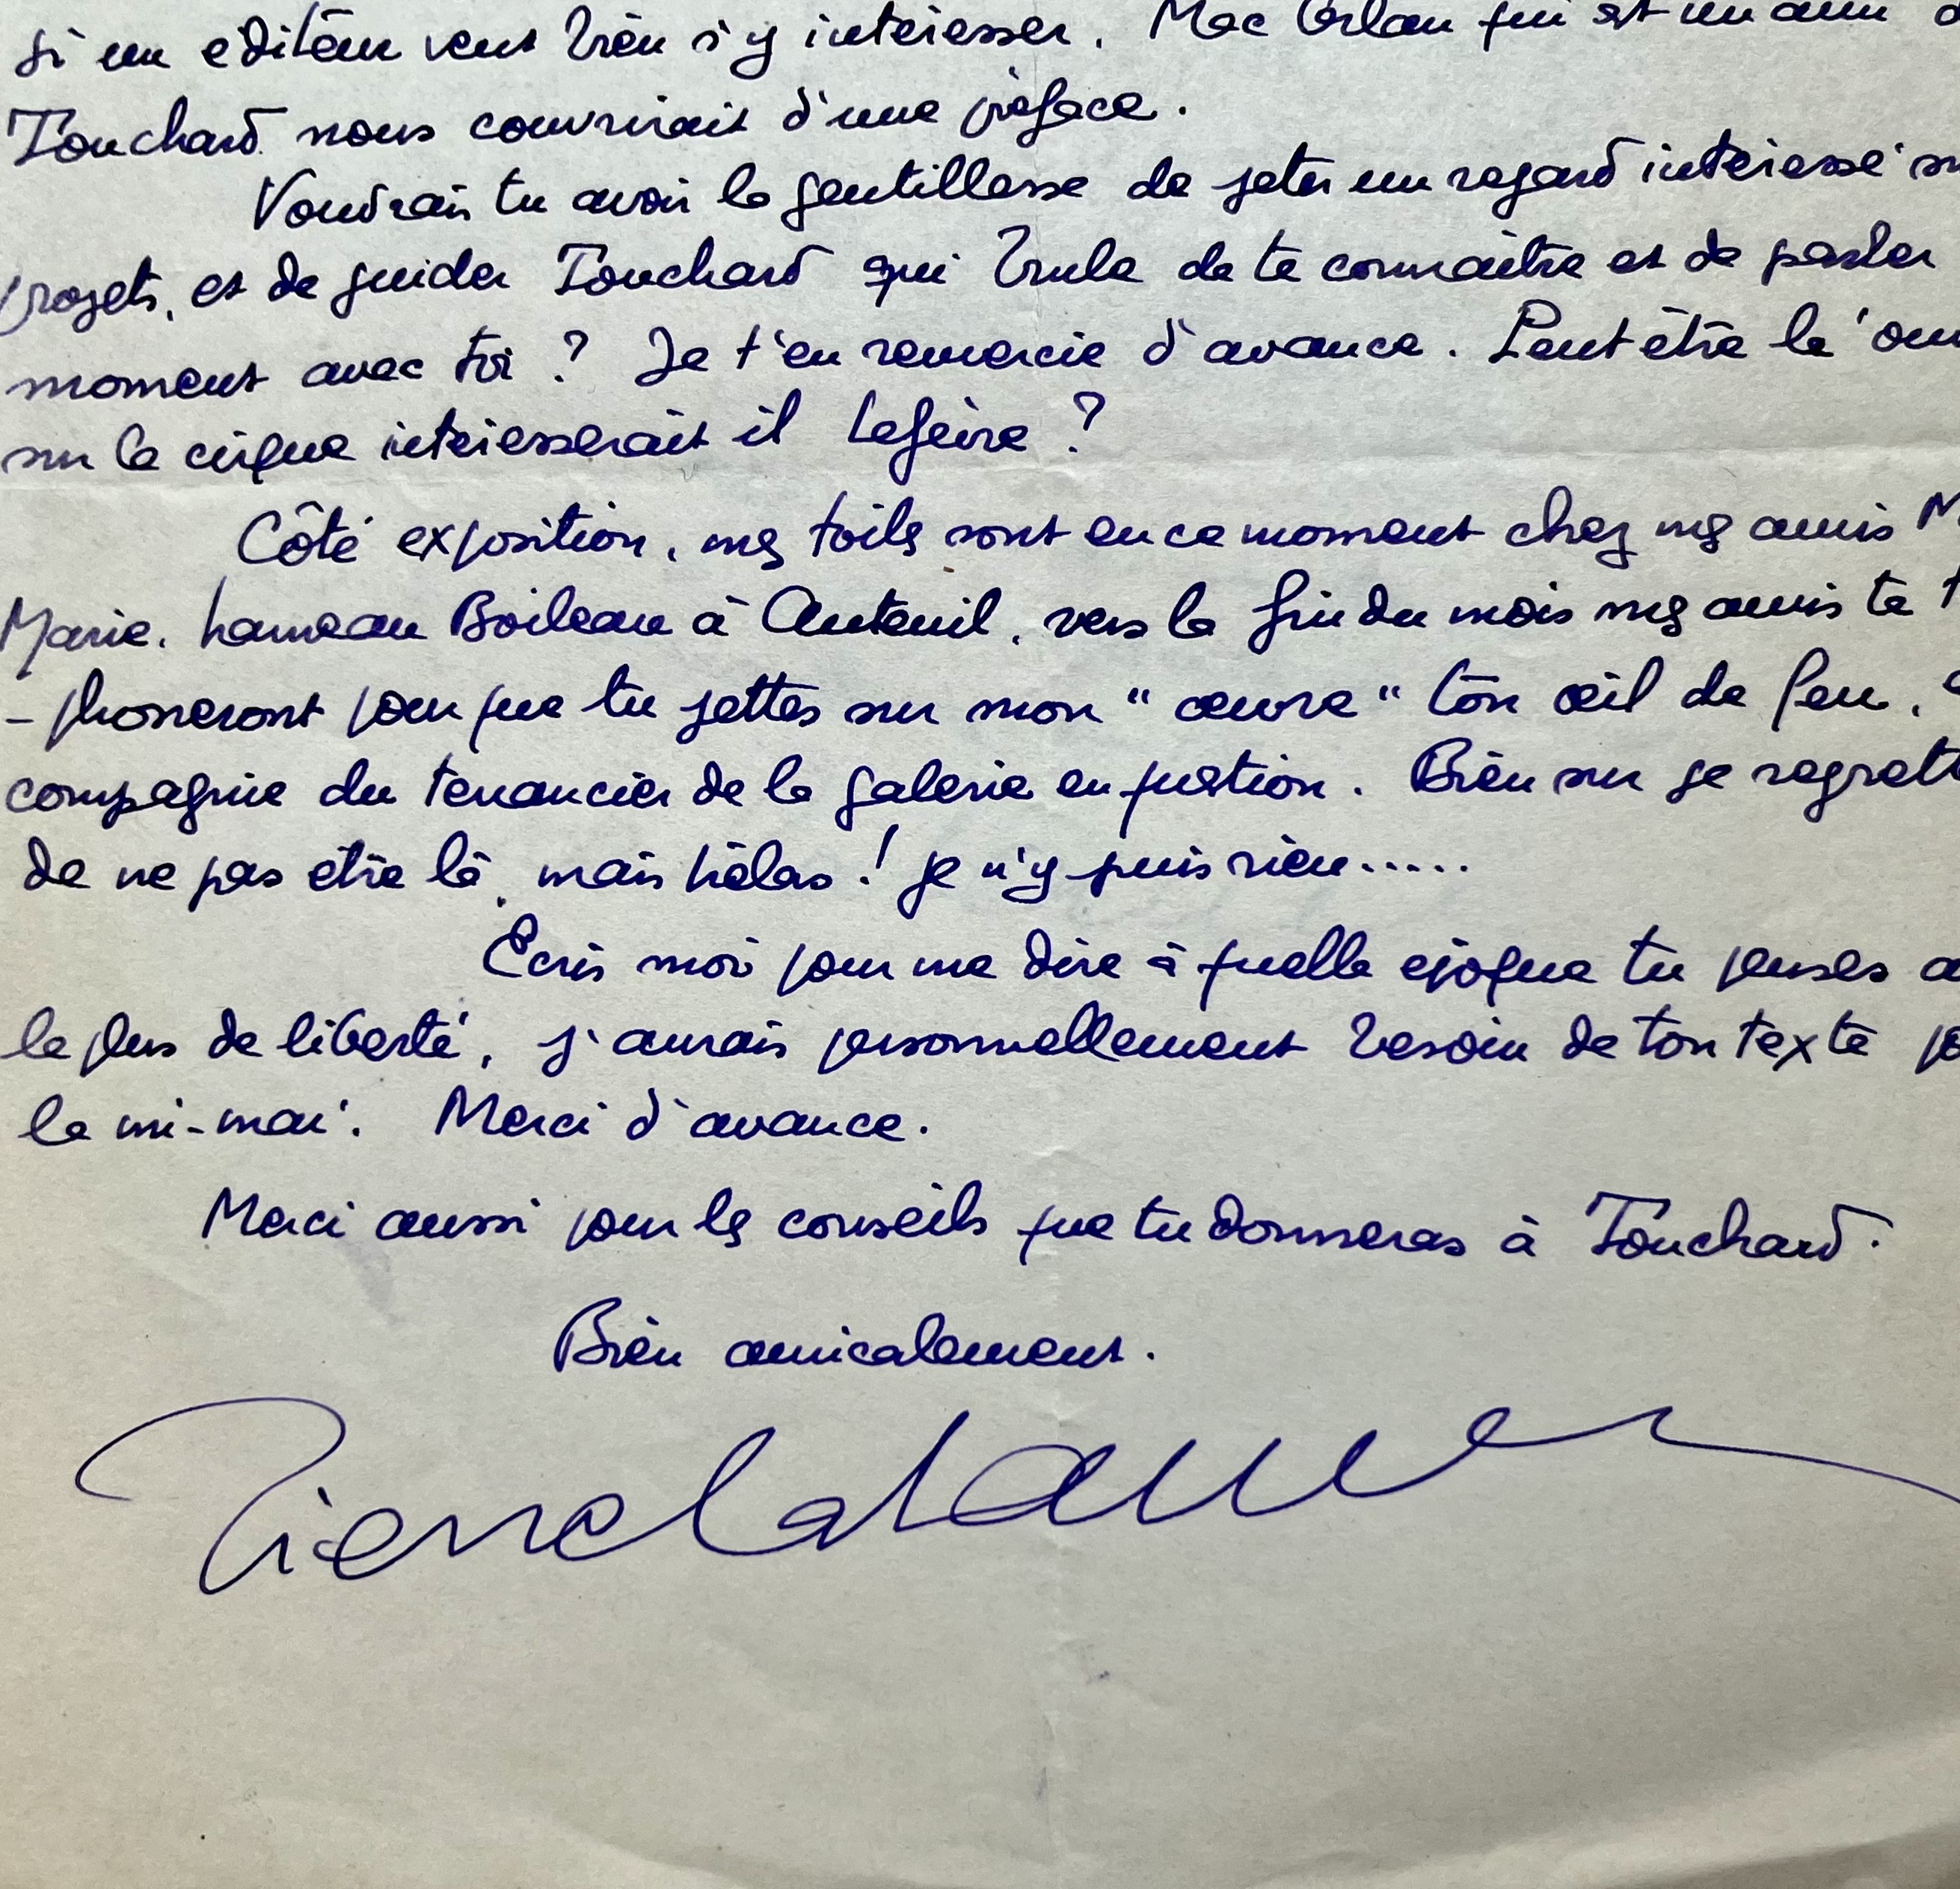 si un editeur veut bien s'y interesser. Mac Orlan qui est un ami
Touchard nous couvrirait d'une préface.
Voudrais tu avoir la gentillesse de jeter un regard interessé
projets, et de guider Touchard qui brule de te connaitre et de parler
moment avec toi ? Je t'en remercie d'avance. Peut être le
sur le cirque interesserait il Lefèvre ?
Côté exposition, mes toiles sont en ce moment chez mes amis
Marie. hameau Boileau à Auteuil, vers la fin du mois mes amis te
- phoneront pour que tu jettes sur mon "œuvre" ton œil de feu,
compagnie du tenancier de la galerie en question. Bien sur je regrette
de ne pas être là, mais hélas ! je n'y puis rien.....
Ecris moi pour me dire à quelle époque tu penses
le plus de liberté, j'aurais personnellement besoin de ton texte
la mi-mai. Merci d'avance.
Merci aussi pour les conseils que tu donneras à Touchard.
Bien amicalement.